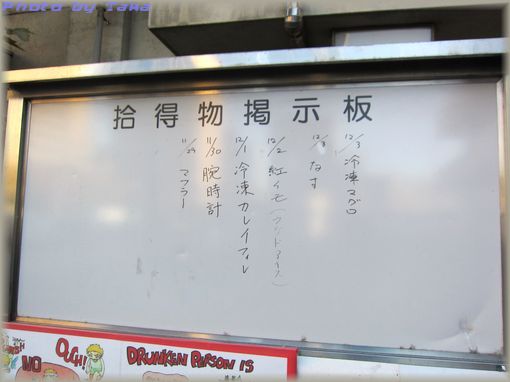 Photo by Taka
拾得物掲示板
12/3 冷凍マグロ
12/3 なす
12/2 紅イモ
12/1 冷凍カレイフィレ
11/30 腕時計
11/29 マフラー
NO
OUCH!
DRUNKEN PERSON IS